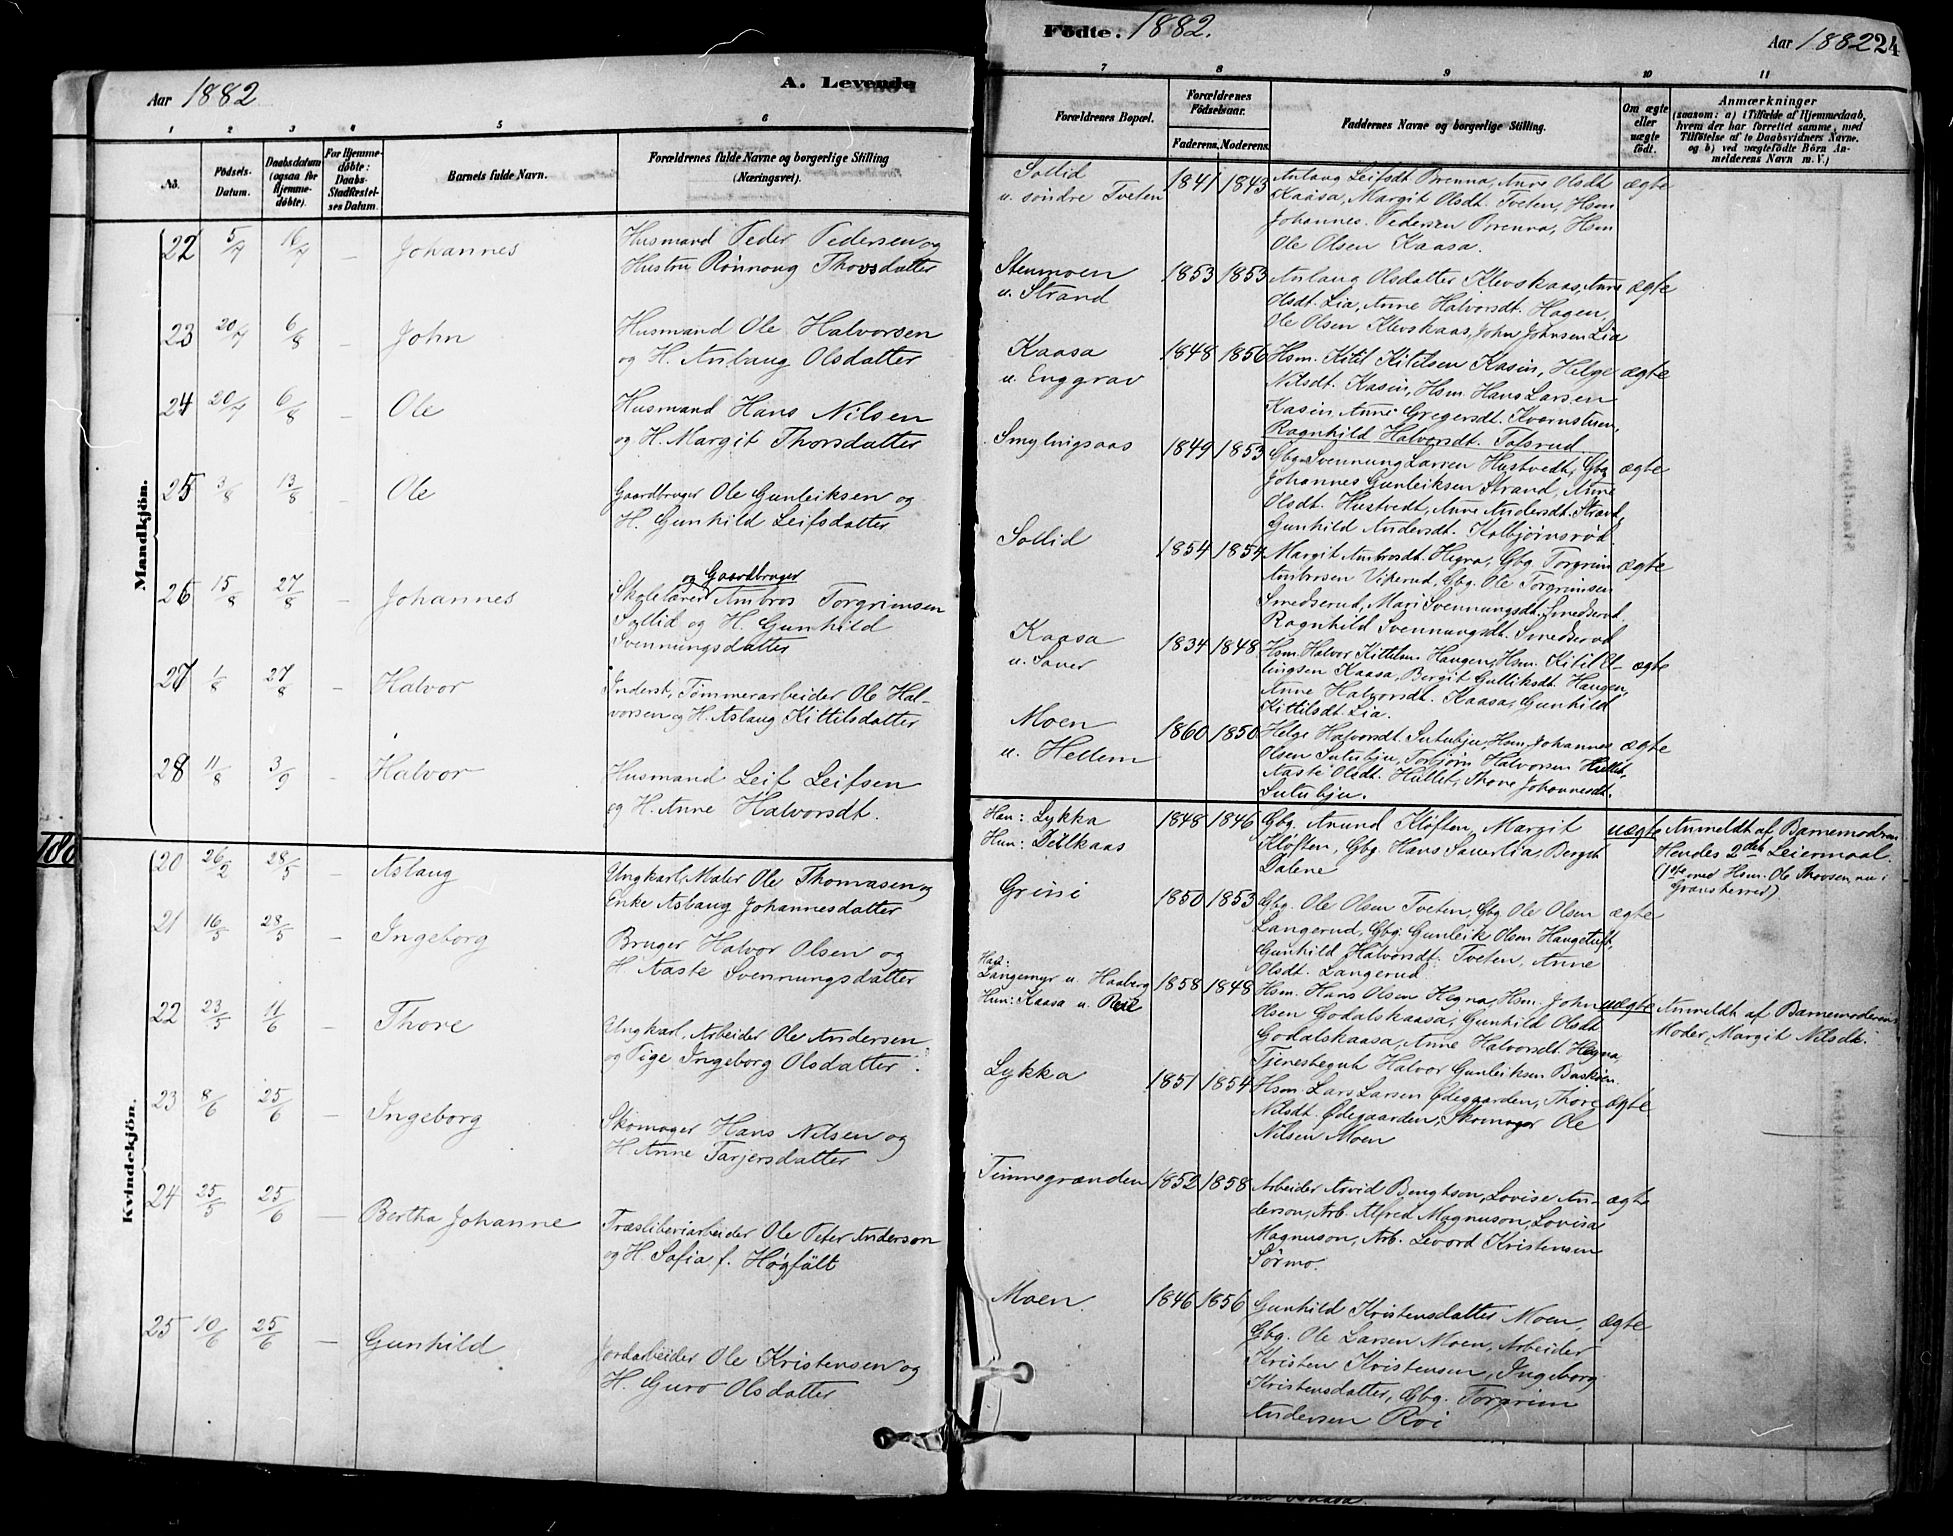 Aar 1882
A. Levende
1 2 3 4 5 6
No.
Fødsels-
Datum.
Daabsdatum
(ogsaa for
Hjemme-
døbte).
For Hjemme-
døbte:
Daabs-
Stadfæstel-
ses Datum.
Barnets fulde Navn.
Forældrenes fulde Navne og borgerlige Stilling
(Næringsvei).
Mandkjön.
22 5/7 16/7 – Johannes
Husmand Peder Pedersen og
Hustru Rønnoug Thovsdatter
23 20/7 6/8 – John
Husmand Ole Halvorsen
og H. Anlaug Olsdatter
24 20/7 6/8 – Ole
Husmand Hans Nilsen
og H. Margit Thorsdatter
25 3/8 13/8 – Ole
Gaardbruger Ole Gunleiksen og
H. Gunhild Leifsdatter
og Gaardbruger
26 15/8 27/8 – Johannes
Skolelærer Ambros Torgrimsen
Sollid og H. Gunhild
Svennungsdatter
27 1/8 27/8 – Halvor
Inderst, Tømmerarbeider Ole Hal-
vorsen og H. Aslaug Kittilsdatter
28 11/8 3/9 – Halvor
Husmand Leif Leifsen
og H. Anne Halvorsdt.
188
Kvindekjön.
20 26/2 28/5 – Aslaug
Ungkarl, Maler Ole Thomasen og
Enke Aslaug Johannesdatter
21 16/5 28/5 – Ingeborg
Bruger Halvor Olsen og
H. Aaste Svennungsdatter
22 23/5 11/6 – Thore
Ungkarl, Arbeider Ole Andersen
og Pige Ingeborg Olsdatter
23 8/6 25/6 – Ingeborg
Skomager Hans Nilsen og
H. Anne Tarjersdatter
24 25/5 25/6 – Bertha Johanne
Træsliberiarbeider Ole Peter Anderson
og H. Sofia f. Högfält
25 10/6 25/6 – Gunhild
Jordarbeider Ole Kristensen og
H. Guro Olsdatter
Födte. 1882.
Aar 1882 24
7 8 9 10 11
Forældrenes Bopæl.
Forældrenes
Födselsaar.
Faderens. Moderens.
Faddernes Navne og borgerlige Stilling.
Om ægte
eller
uægte
født.
Anmærkninger
(saasom: a) i Tilfælde af Hjemmedaab,
hvem der har forrettet samme, med
Tilføielse af to Daabsvidners Navne.
og b) ved uægtefödte Börn An-
melderens Navn m. V.)
Sollid
u. søndre Tveten
1841 1843
Anlaug Leifsdt. Brenna, Anne Olsdt.
Kaasa, Margit Olsdt. Tveten, Hsm.
Johannes Pedersen Brenna, Hsm.
Ole Olsen Kaasa.
ægte
Stenmoen
u. Strand
1853 1853
Anlaug Olsdatter Klevskaas, Anne
Olsdt. Lia, Anne Halvorsdt. Hagen,
Ole Olsen Klevskaas, John Johnsen Lia
ægte
Kaasa
u. Enggrav
1848 1856
Hsm. Kitil Kitilsen Kasin, Helge
Nilsdt. Kasin, Hsm. Hans Larsen
Kasin, Anne Gregersdt. Kvernstuen,
Ragnhild Halvorsdt. Tofsrud
ægte
Smylingsaas
1849 1853
Gbg. Svennung Larsen Hustvedt, Gbg.
Johannes Gunleiksen Strand, Anne
Olsdt. Hustvedt, Anne Andersdt. Strand,
Gunhild Andersdt. Kolbjørnsrød.
ægte
Sollid
1854 1854
Margit Ambrosdt. Hegna, Gbg. Torgrim
Ambrosen Vikerud, Gbg. Ole Torgrimsen
Smedserud, Mari Svennungsdt. Smedserud,
Ragnhild Svennungsdt. Smedserud
ægte
Kaasa
u. Sauer
1834 1848
Hsm. Halvor Kittilsen Haugen, Hsm. Kitil El-
lingsen Kaasa, Bergit Gulliksdt. Haugen,
Anne Halvorsdt. Kaasa, Gunhild
Kittilsdt. Lia.
ægte
Moen
u. Hellem
1860 1850
Helge Halvorsdt. Sutubju, Hsm. Johannes
Olsen Sutubju, Torbjørn Halvorsen Hullet,
Aaste Olsdt. Hullet, Thore Johannesdt.
Sutubju.
ægte
Han: Lykka
Hun: Detlkaas
1848 1846
Gbg. Anund Kløften, Margit
Kløften, Gbg. Hans Sauerlia, Bergit
Dalene
uægte
Anmeldt af Barnemodren
Hendes 2det Leiermaal.
(1ste med Hsm. Ole Thovsen, nu i
Gransherred)
Grini
1850 1853
Gbg. Ole Olsen Tveten, Gbg. Ole Olsen
Langerud, Gbg. Gunleik Olsen Haugetuft,
Gunhild Halvorsdt. Tveten, Anne
Olsdt. Langerud
ægte
Han:
Langemyr u. Haaberg
Hun: Kaasa u. Reie
1858 1848
Hsm. Hans Olsen Hegna, Hsm. John
Olsen Godalskaasa, Gunhild Olsdt.
Godalskaasa, Anne Halvorsdt. Hegna,
Tjenestegut Halvor Gunleiksen
uægte
Anmeldt af Barnemoderens
Moder, Margit Nilsdt.
Lykka
1851 1854
Hsm. Lars Larsen Ødegaarden, Thore
Nilsdt. Ødegaarden, Skomager Ole
Nilsen Moen
ægte
Tinnegrænden
1852 1858
Arbeider Arvid Bengtson, Lovise An-
derson, Arb. Alfred Magnuson, Lovisa
Magnuson, Arb. Levord Kristensen
Sørmo.
ægte
Moen.
1846 1856
Gunhild Kristensdatter Moen,
Gbg. Ole Larsen Moen, Arbeider
Kristen Kristensen, Ingeborg
Kristensdatter, Gbg. Torgrim
Andersen Roi
ægte